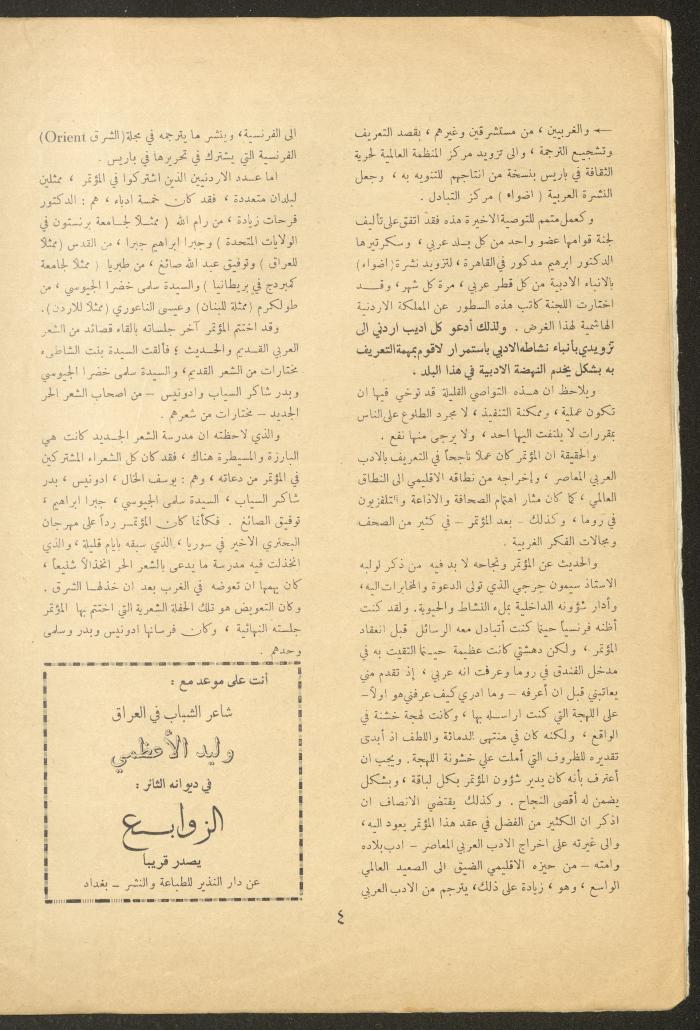 ← والغربيين ، من مستشرقين وغيرهم ، بقصد التعريف
وتشجيع الترجمة ، والى تزويد مركز المنظمة العالمية لحرية
الثقافة في باريس بنسخة من انتاجهم للتنويه به ، وجعل
النشرة العربية ( اضواء ) مركز التبادل .
وكعمل متمم للتوصية الاخيرة هذه فقد اتفق على تأليف
لجنة قوامها عضو واحد من كل بلد عربي ، وسكرتيرها
الدكتور ابرهيم مدكور في القاهرة ، لتزويد نشرة (اضواء)
بالانباء الادبية من كل قطر عربي ، مرة كل شهر، وقد
اختارت اللجنة كاتب هذه السطور عن المملكة الاردنية
الهاشمية لهذا الغرض . ولذلك أدعو كل اديب اردني الى
تزويدي بأنباء نشاطه الادبي باستمرار لاقوم بمهمة التعريف
به بشكل يخدم النهضة الادبية في هذا البلد .
ويلاحظ ان هذه التواصي القليلة قد توخي فيها ان
تكون عملية ، وممكنة التنفيذ ، لا مجرد الطلوع على الناس
بمقررات لا يلتفت اليها احد ، ولا يرجى منها نفع .
والحقيقة ان المؤتمر كان عملا ناجحاً في التعريف بالادب
العربي المعاصر ، وإخراجه من نطاقه الاقليمي الى النطاق
العالمي ، كما كان مثار اهتمام الصحافة والاذاعة والتلفزيون
في روما ، وكذلك - بعد المؤتمر - في كثير من الصحف
ومجالات الفكر الغربية .
والحديث عن المؤتمر ونجاحه لا بد فيه من ذكر لولبه
الاستاذ سيمون جرجي الذي تولى الدعوة والمخابرات اليه،
وأدار شؤونه الداخلية بملء النشاط والحيوية. ولقد كنت
أظنه فرنسياً حينما كنت أتبادل معه الرسائل قبل انعقاد
المؤتمر ، ولكن دهشتي كانت عظيمة حينما التقيت به في
مدخل الفندق في روما وعرفت انه عربي ، إذ تقدم مني
يعاتبني قبل ان أعرفه - وما ادري كيف عرفني هو اولا-
على اللهجة التي كنت اراسله بها ، وكانت لهجة خشنة في
الواقع ، ولكنه كان في منتهى الدماثة واللطف اذ أبدى
تقديره للظروف التي أملت علي خشونة اللهجة. ويجب ان
أعترف بأنه كان يدير شؤون المؤتمر بكل لباقة ، وبشكل
يضمن له أقصى النجاح . وكذلك يقتضي الانصاف ان
اذكر ان الكثير من الفضل في عقد هذا المؤتمر يعود اليه،
والى غيرته على اخراج الادب العربي المعاصر - ادب بلاده
وامته - من حيزه الاقليمي الضيق الى الصعيد العالمي
الواسع ، وهو ، زيادة على ذلك، يترجم من الادب العربي
الى الفرنسية، وينشر ما يترجمه في مجلة (الشرق Orient)
الفرنسية التي يشترك في تحريرها في باريس .
اما عدد الاردنيين الذين اشتركوا في المؤتمر ، ممثلين
لبلدان متعددة ، فقد كان خمسة ادباء ، هم : الدكتور
فرحات زيادة ، من رام الله ( ممثلاً لجامعة برنستون في
الولايات المتحدة ) وجبرا ابراهيم جبرا ، من القدس (ممثلاً
للعراق ) وتوفيق عبد الله صائغ ، من طبريا ( ممثلا لجامعة
كمبردج في بريطانيا ) والسيدة سلمى خضرا الجيوسي ، من
طولكرم (ممثلة للبنان) وعيسى الناعوري (ممثلا للاردن).
وقد اختتم المؤتمر آخر جلساته بالقاء قصائد من الشعر
العربي القديم والحديث ؛ فألقت السيدة بنت الشاطىء
مختارات من الشعر القديم، والسيدة سلمى خضرا الجيوسي
وبدر شاكر السياب وادونيس - من اصحاب الشعر الحر
الجديد - مختارات من شعرهم .
والذي لاحظته ان مدرسة الشعر الجديد كانت هي
البارزة والمسيطرة هناك ، فقد كان كل الشعراء المشتركين
في المؤتمر من دعاته ، وهم : يوسف الخال ، ادونيس ، بدر
شاكر السياب ، السيدة سلمى الجيوسي ، جبرا ابراهيم ،
توفيق الصائغ . فكأنما كان المؤتمر رداً على مهرجان
البحتري الاخير في سوريا ، الذي سبقه بايام قليلة ، والذي
انخذلت فيه مدرسة ما يدعى بالشعر الحر انخذالاً شنيعاً ،
كان يهمها ان تعوضه في الغرب بعد ان خذلها الشرق .
وكان التعويض هو تلك الحفلة الشعرية التي اختتم بها المؤتمر
جلسته النهائية ، وكان فرسانها ادونيس وبدر وسلمى
وحدهم .
أنت على موعد مع :
شاعر الشباب في العراق
وليد الأعظمي
في ديوانه الثائر :
الزوابع
يصدر قريباً
عن دار النذير للطباعة والنشر - بغداد
٤